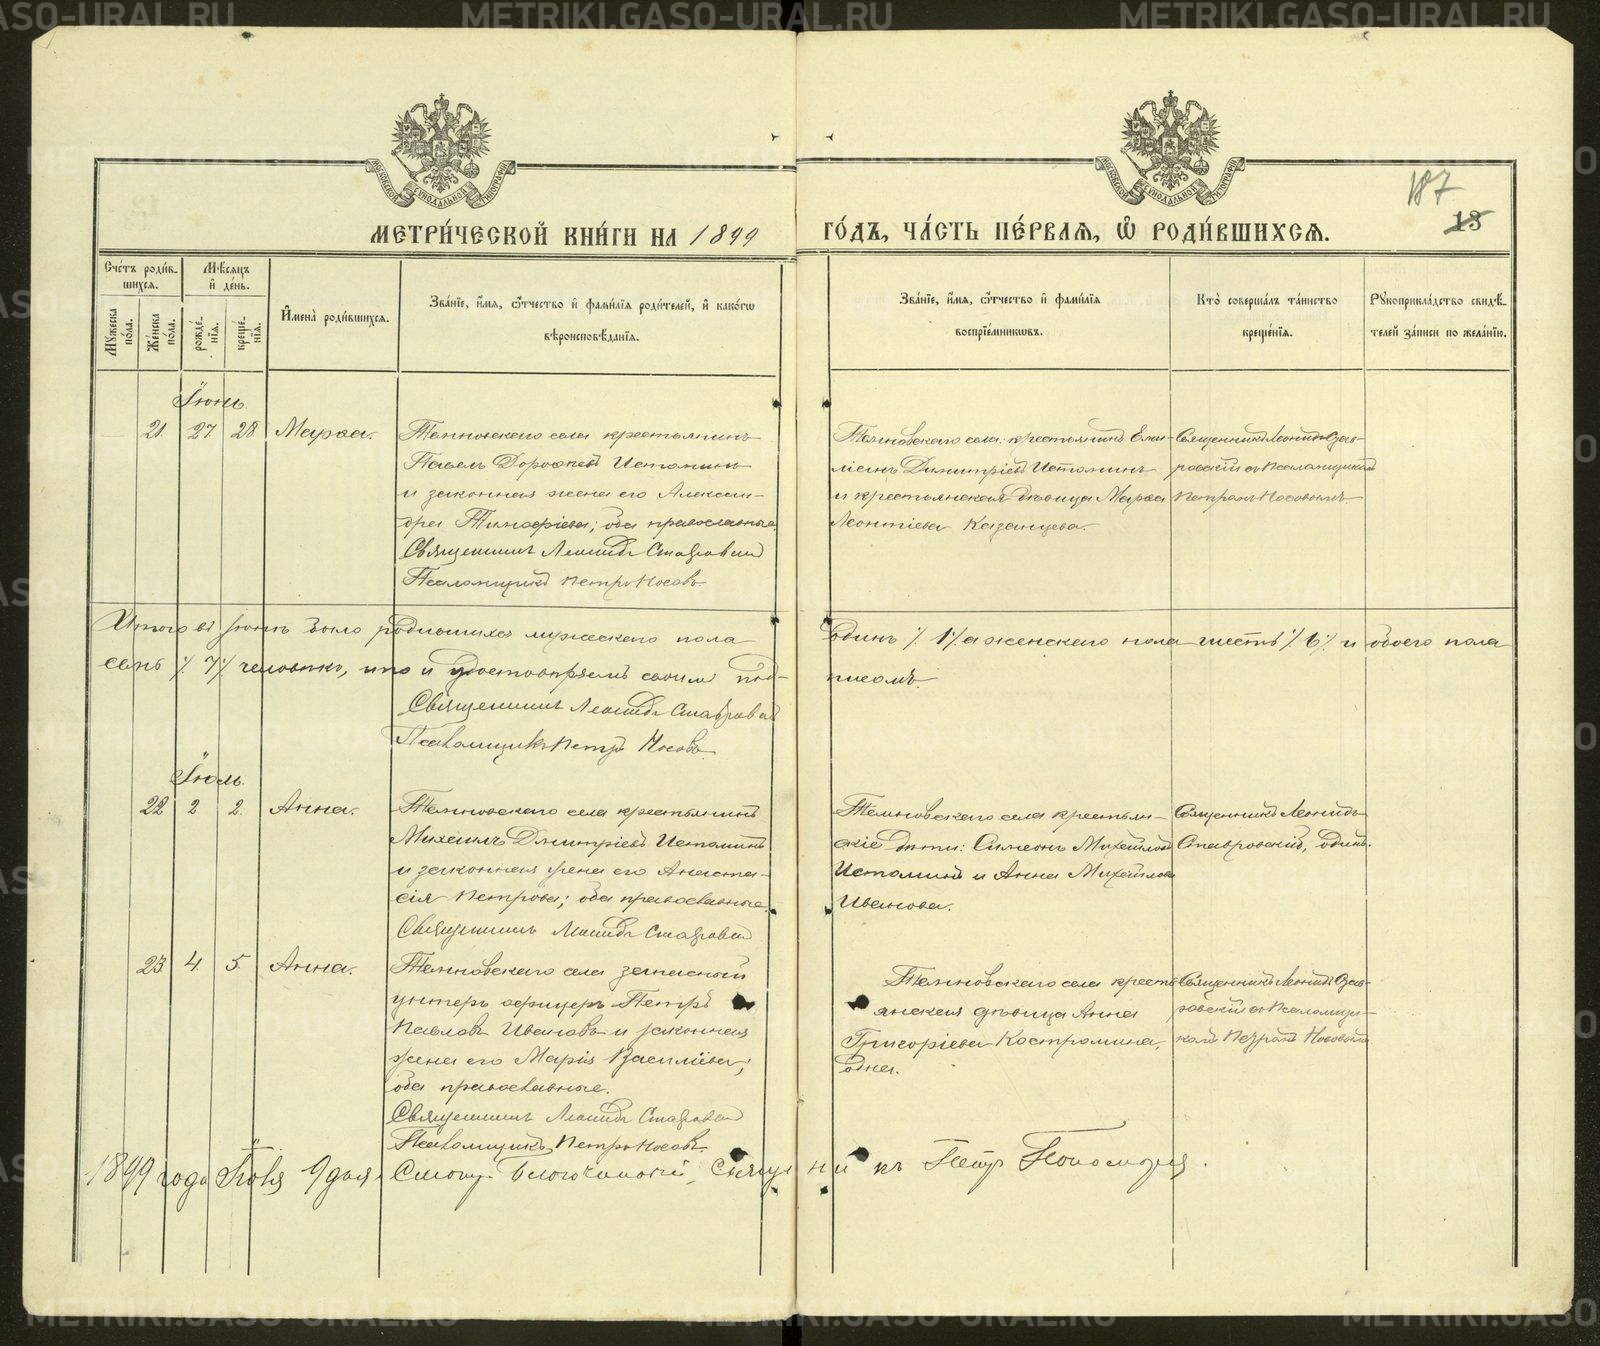 METRIKI.GASO-URAL.RU
МОСКОВСКОЙ СѴНОДАЛЬНОЙ ТИПОГРАФІИ
187
13
МЕТРИ́ЧЕСКОЙ КНИ́ГИ НА 1899 ГО́ДЪ, ЧА́СТЬ ПЕ́РВАѦ, Ѽ РОДИ́ВШИХСѦ.
Сче́тъ роди́в-
шихся.
Мѣ́сяцъ
и҆ де́нь.
Мꙋ́жеска по́ла.
Же́нска по́ла.
рожде́-
нїя.
креще́-
нїя.
И҆мена̀ роди́вшихся.
Зва́нїе, и҆́мя, ѻ҆́тчество и҆ фами́лїя роди́телей, и҆ како́гѡ
вѣроисповѣ́данїя.
Зва́нїе, и҆́мя, ѻ҆́тчество и҆ фами́лїя
воспрїе́мникѡвъ.
Кто̀ соверша́лъ та́инство
креще́нїя.
Рꙋкоприкла́дство свидѣ́-
телей за́писи по жела́нїю.
Іюнь.
21. 27. 28 Марѳа.
Темновскаго села крестьянинъ
Павелъ Дороѳеевъ Истоминъ
и законная жена его Алексан-
дра Тимофѣева; оба православные.
Священникъ Леонидъ Ставровскій
Псаломщикъ Петръ Носовъ
Темновскаго села: крестьянинъ Еми-
ліанъ Димитріевъ Истоминъ
и крестьянская дѣвица Марѳа
Леонтіева Казанцева.
Священникъ Леонидъ Став-
ровскій съ Псаломщикомъ
Петромъ Носовымъ
Итого въ Іюнѣ было родившихся мужескаго пола одинъ ⁒ 1 ⁒ а женскаго пола шесть ⁒ 6 ⁒ и обоего пола
семь ⁒ 7 ⁒ человѣкъ, что и удостовѣряемъ своимъ под-
писомъ.
Священникъ Леонидъ Ставровскій
Псаломщикъ Петръ Носовъ
Іюль.
22 2 2. Анна.
Темновскаго села крестьянинъ
Михаилъ Дмитріевъ Истоминъ
и законная жена его Анаста-
сія Петрова; оба православные.
Священникъ Леонидъ Ставровскій
Темновскаго села крестьян-
скіе дѣти: Симеонъ Михайловъ
Истоминъ и Анна Михайлова
Иванова.
Священникъ Леонидъ
Ставровскій, одинъ.
23 4. 5. Анна.
Темновскаго села запасный
унтеръ офицеръ Петръ
Павловъ Ивановъ и законная
жена его Марія Васильева;
оба православные.
Священникъ Леонидъ Ставровскій
Псаломщикъ Петръ Носовъ.
Темновскаго села кресть-
янская дѣвица Анна
Григоріева Костромина,
одна.
Священникъ Леонидъ Став-
ровскій съ Псаломщи-
комъ Петромъ Носовымъ
1899 года Іюля 9 дня. Смотр. Благочинный, Священникъ Петръ Пономаревъ.